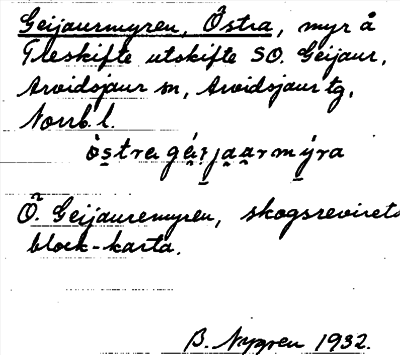 Geijaurmyren, Östra, myr å
Treskifte utskifte SO. Geijaur,
Arvidsjaur sn, Arvidsjaur tg,
Norrb. l.
östra gái̯jaarmýra
Ö. Geijauremyren, skogsrevirets
block-karta.
B. Nygren 1932.